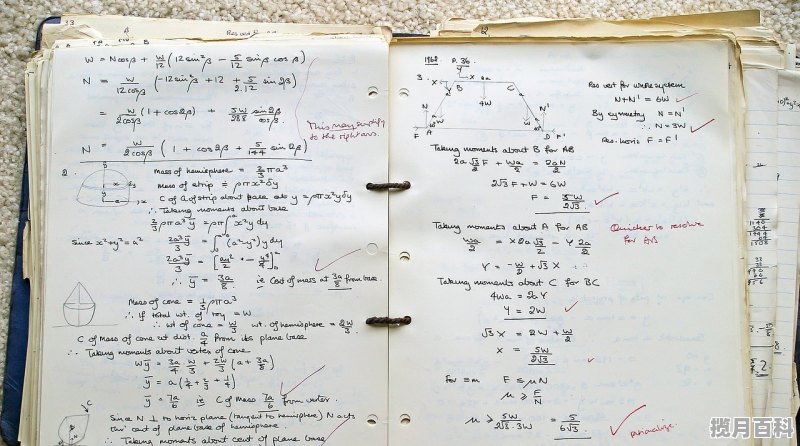 33
W = N cosβ + W/12 (12 sin²β − 5/12 sinβ cosβ)
N = W/12cosβ (−12 sin²β + 12 + 5/2.12 sin 2β)
= W/2cosβ (1 + cos2β) + 5W/288 sin2β/cosβ.
This may simplify to the right ans.
N = W/2cosβ (1 + cos2β + 5/144 sin 2β)
2.
Mass of hemisphere = 2/3 πa³
Mass of strip = ρπx²δy
C of G of strip about base as y = ρπx²yδy
∴ Taking moments about base
2/3 ρπa³ȳ = ρπ∫x²y dy
since x²+y²=a² 2a³ȳ/3 = ∫(a²−y²)y dy
∴ ȳ = 3a/8 ie Cent of mass at 3a/8 from base.
Mass of cone = 1/3 ρπa³
∴ If total wt. of toy = W
∴ wt of cone = W/3 wt. of hemisphere = 2W/3
C of Mass of cone at dist. a/4 from its plane base
∴ Taking moments about vertex of cone
Wȳ = 3a/4 W/3 + 2W/3 (a + 3a/8)
ȳ = 7a/6 ie C of Mass 7a/6 from vertex.
Since N ⊥ to horiz plane (tangent to hemisphere) N acts
thro' cent of plane base of hemisphere.
∴ Taking moments about cent of plane base
1962 P.36
3.
X
X
2a
B
C
4W
N
N'
W
W
F
A
D
F'
Res vert for whole system
N+N' = 6W
By symmetry N = N'
∴ N = 3W
Res. horiz F = F'
Taking moments about B for AB
2a √3/2 F + Wa/2 = 2aN/2
2√3F + W = 6W
F = 5W/2√3
Taking moments about A for AB
Quicker to resolve for AB
Wa/2 = X2a√3/2 − Y 2a/2
Y = −W/2 + √3 X
Taking moments about C for BC
4Wa = 2aY
Y = 2W
√3X = 2W + W/2
X = 5W/2√3
for =m F ≤ μN
μ ≥ F/N
μ ≥ 5W/2√3.3W = 5/6√3
rationalize.
揽月百科